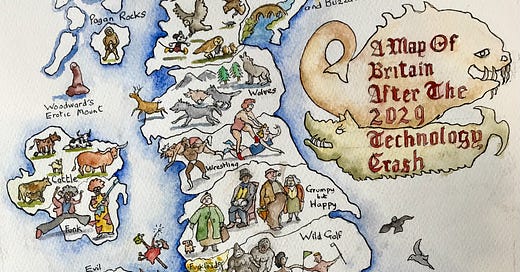 and Buzza
Pagan Rocks
A Map Of
Britain
After The
2029
Technology
Crash
Wolves
Woodward's
Erotic Mount
Wrestling
Cattle
Grumpy
but
Happy
Funk
Wild Golf
Evil